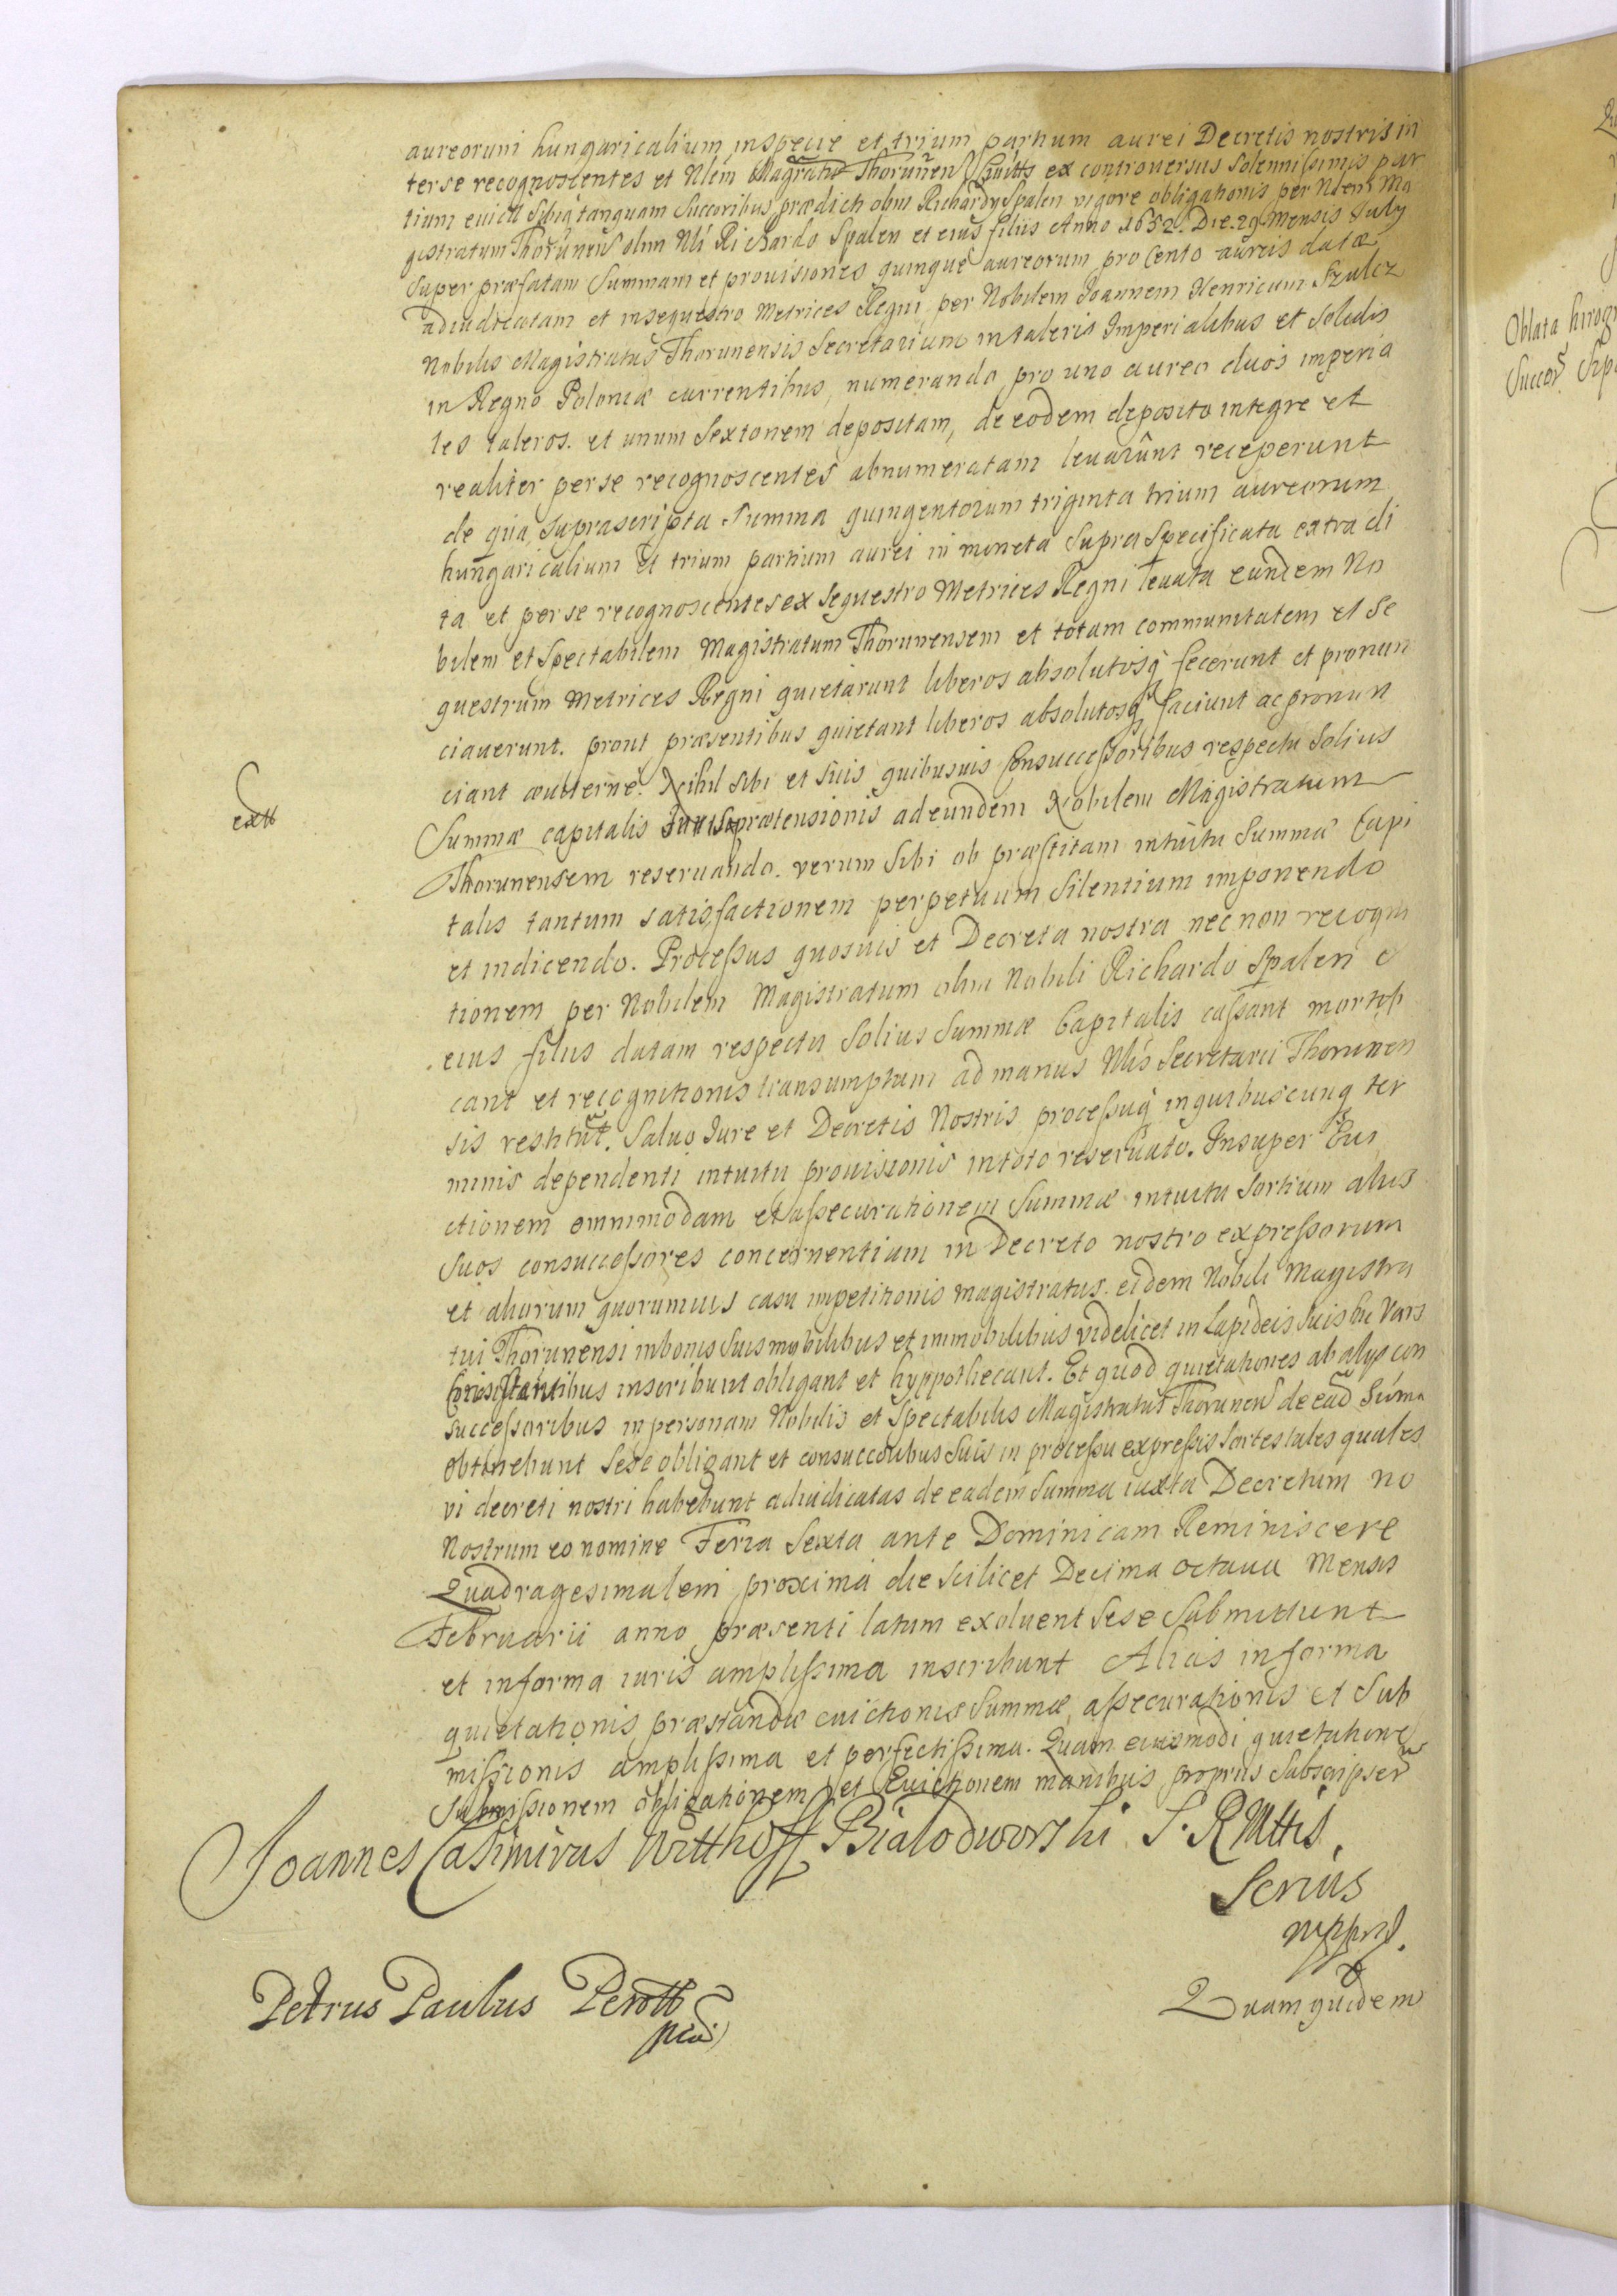 aureorum hungaricalium inspecie et trium partium aurei Decretis nostris in
ter se recognoscentes et Nlem Magratū Thorunen ex controversijs solennissimis par
tium evict sibiq tanquam Succoribus prædicti olim Richardy Spalen vigore obligationis per Nlem Ma
gistratum Thorunens olim Nli Richardo Spalen et eius filiis Anno 1652. Die 29 Mensis July
super præfatam Summam et provisiones quinque aureorum pro Cento aureis datæ
adiudicatam et in sequestro Metrices Regni per Nobilem Joannem Henricum Szulcz
Nobilis Magistratus Thorunensis Secretarium in taleris Imperialibus et Solidis
in Regno Poloniæ currentibus, numerando pro uno aureo duos imperia
les taleros. et unum Sextonem depositam, de eodem deposito integre et
realiter per se recognoscentes abnumeratam levarunt receperunt
de qua supra scripta Summa quingentorum triginta trium aureorum
hungaricalium et trium partium aurei in moneta supra specificata extradi
ta et per se recognoscentes ex sequestro Metrices Regni levata eundem No
bilem et Spectabilem Magistratum Thorunensem et totam communitatem et Se
questrum Metrices Regni quietarunt liberos absolutosq fecerunt et pronun
ciaverunt. prout præsentibus quietant liberos absolutosq faciunt ac pronun
ciant æviterne. Nihil sibi et suis quibusvis Consuccessoribus respectu Solius
extt
Summæ capitalis Juris prætensionis ad eundem Nobilem Magistratum
Thorunensem reservando. verum sibi ob præstitam intuitu Summæ Capi
talis tantum satisfactionem perpetuum silentium imponendo
et indicendo. Processus quosvis et Decreta nostra nec non recogni
tionem per Nobilem Magistratum olim Nobili Richardo Spalen &
eius filiis datam respectu Solius Summæ Capitalis cassant mortifi
cant et recognitionis transumptum ad manus Nlis Secretarii Thorunen
sis restituūt. Salvo Jure et Decretis Nostris processuq in quibuscunq ter
minis dependenti intuitu provisionis in toto reservato. Insuper Evi
ctionem omnimodam et assecurationem Summæ intuitu Sortium alios
suos consuccessores concernentium in Decreto nostro expressorum
et aliorum quorumvis casu impetitionis magistratus eidem Nobili Magistra
tui Thorunensi in bonis suis mobilibus et immobilibus videlicet in Lapideis suis hic Vars
consistentibus inscribunt obligant et hyppothecant. Et quod quietationes ab alijs con
successoribus in personam Nobilis et Spectabilis Magistratus Thorunens de eād Suma
obtinebunt sese obligant et consuccoribus suis in processu expressis Sortes tales quales
vi decreti nostri habebunt adiudicatas de eadem Summa iuxta Decretum no
Nostrum eo nomine Feria Sexta ante Dominicam Reminiscere
Quadragesimalem proxima die scilicet Decima Octava Mensis
Februarii anno præsenti latum exoluent sese submittunt
et in forma iuris amplissima inscribunt Aliis in forma
quietationis præstandæ evictionis Summæ, assecurationis et Sub
missionis amplissima et perfectissima. Quam eiusmodi quietatione
Submissionem obligationem et Evictionem manibus proprijs subscripserū
Joannes Casimirus Witthoff Białodworski S. R Mttis
Serius
mppria.
Petrus Paulus Perotti
mpria
Quam quidem
Oblata
Succor